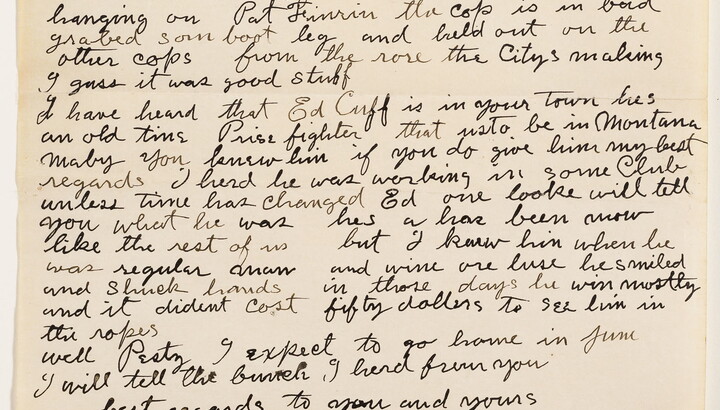 hanging on Pat Finrin the cop is in bad
grabed som boot leg and held out on the
other cops from the rore the Citys making
I guss it was good stuff
I have heard that Ed Cuff is in your town hes
an old time Prise fighter that usto be in Montana
maby you knew him if you do give him my best
regards I herd he was working in some Club
unless time has changed Ed one looke will tell
you what he was hes a has been now
like the rest of us but I knew him when he
was regular man and wine ore luse he smiled
and shuck hands in those days he win mostly
and it dident cost fifty dollers to see him in
the ropes
well Pesty I expect to go home in June
I will tell the bunch I herd from you
best regards to you and yours